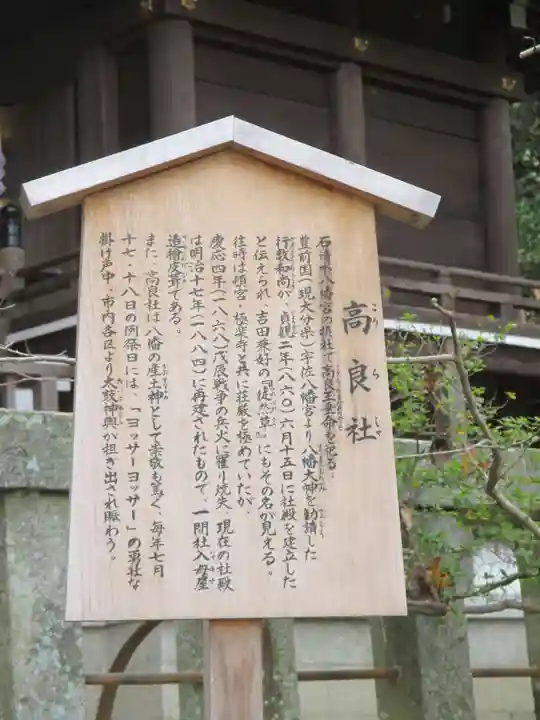 高良社
こうらしゃ
石清水八幡宮の摂社で高良玉垂命を祀る
豊前国(現大分県)宇佐八幡宮より八幡大神を勧請した
行教和尚が、貞観二年(八六〇)六月十五日に社殿を建立した
と伝えられ、吉田兼好の『徒然草』にもその名が見える。
往時は頓宮・極楽寺と共に荘厳を極めていたが、
慶応四年(一八六八)戊辰戦争の兵火に罹り焼失、現在の社殿
は明治十七年(一八八四)に再建されたもので、一間社入母屋
造檜皮葺である。
また、高良社は八幡の産土神として崇敬も篤く、毎年七月
十七、十八日の例祭日には、「ヨッサーヨッサー」の勇壮な
掛け声の中、市内各区より太鼓神輿が担ぎ出され賑わう。